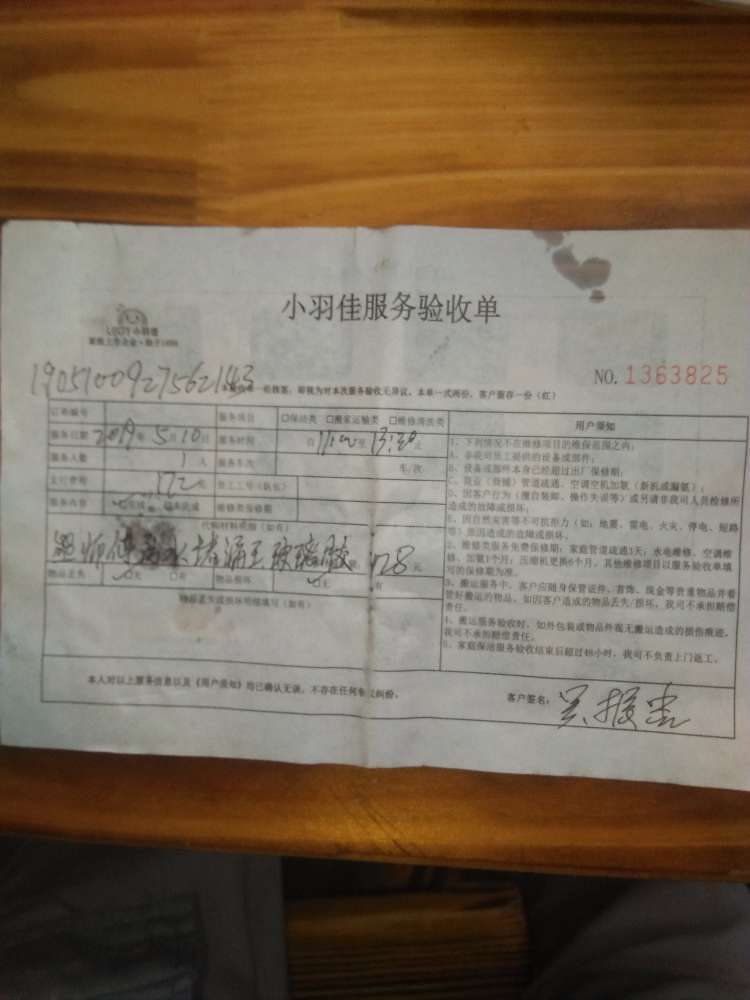 小羽佳服务验收单
小羽佳
家政上市企业·始于1998
NO. 1363825
19051009275621443
订单编号
服务项目 □保洁类 □搬家运输类 □维修清洗类
服务日期 2019年 5月 10日 服务时间 自 11:00 至 13:30 止
服务人数 1 人 服务车次 车/次
支付费用 172 元 员工工号(队长)
服务内容 完成 未完成 维修类保修期
代购材料明细(如有)
水堵漏王玻璃胶 28 元
物品丢失 □无 □有 物品损坏 □无 有
物品丢失或损坏明细填写(如有)
用户须知
1、下列情况不在维修项目的维保范围之内:
A、非我司员工提供的设备或部件;
B、设备或部件本身已经超过出厂保修期;
C、商业(商铺)管道疏通、空调空机加氨(新机或漏氨);
D、因客户行为(擅自装卸、操作失误等)或另请非我司人员检修所
造成的故障或损坏;
E、因自然灾害等不可抗拒力(如:地震、雷电、火灾、停电、短路
等)原因造成的故障或损坏。
2、维修类服务免费保修期:家庭管道疏通3天;水电维修、空调维
修、加氨1个月;压缩机更换6个月。其他维修项目以服务验收单填
写的保修期为准。
3、搬运服务中,客户应随身保管证件、首饰、现金等贵重物品并看
管好搬运的物品,如因客户造成的物品丢失/损坏,我司不承担赔偿
责任。
4、搬运服务验收时,如外包装或物品外观无搬运造成的损伤痕迹,
我司不承担赔偿责任。
5、家庭保洁服务验收结束后超过48小时,我司不负责上门返工。
本人对以上服务信息以及《用户须知》均已确认无误,不存在任何争议纠纷。
客户签名: